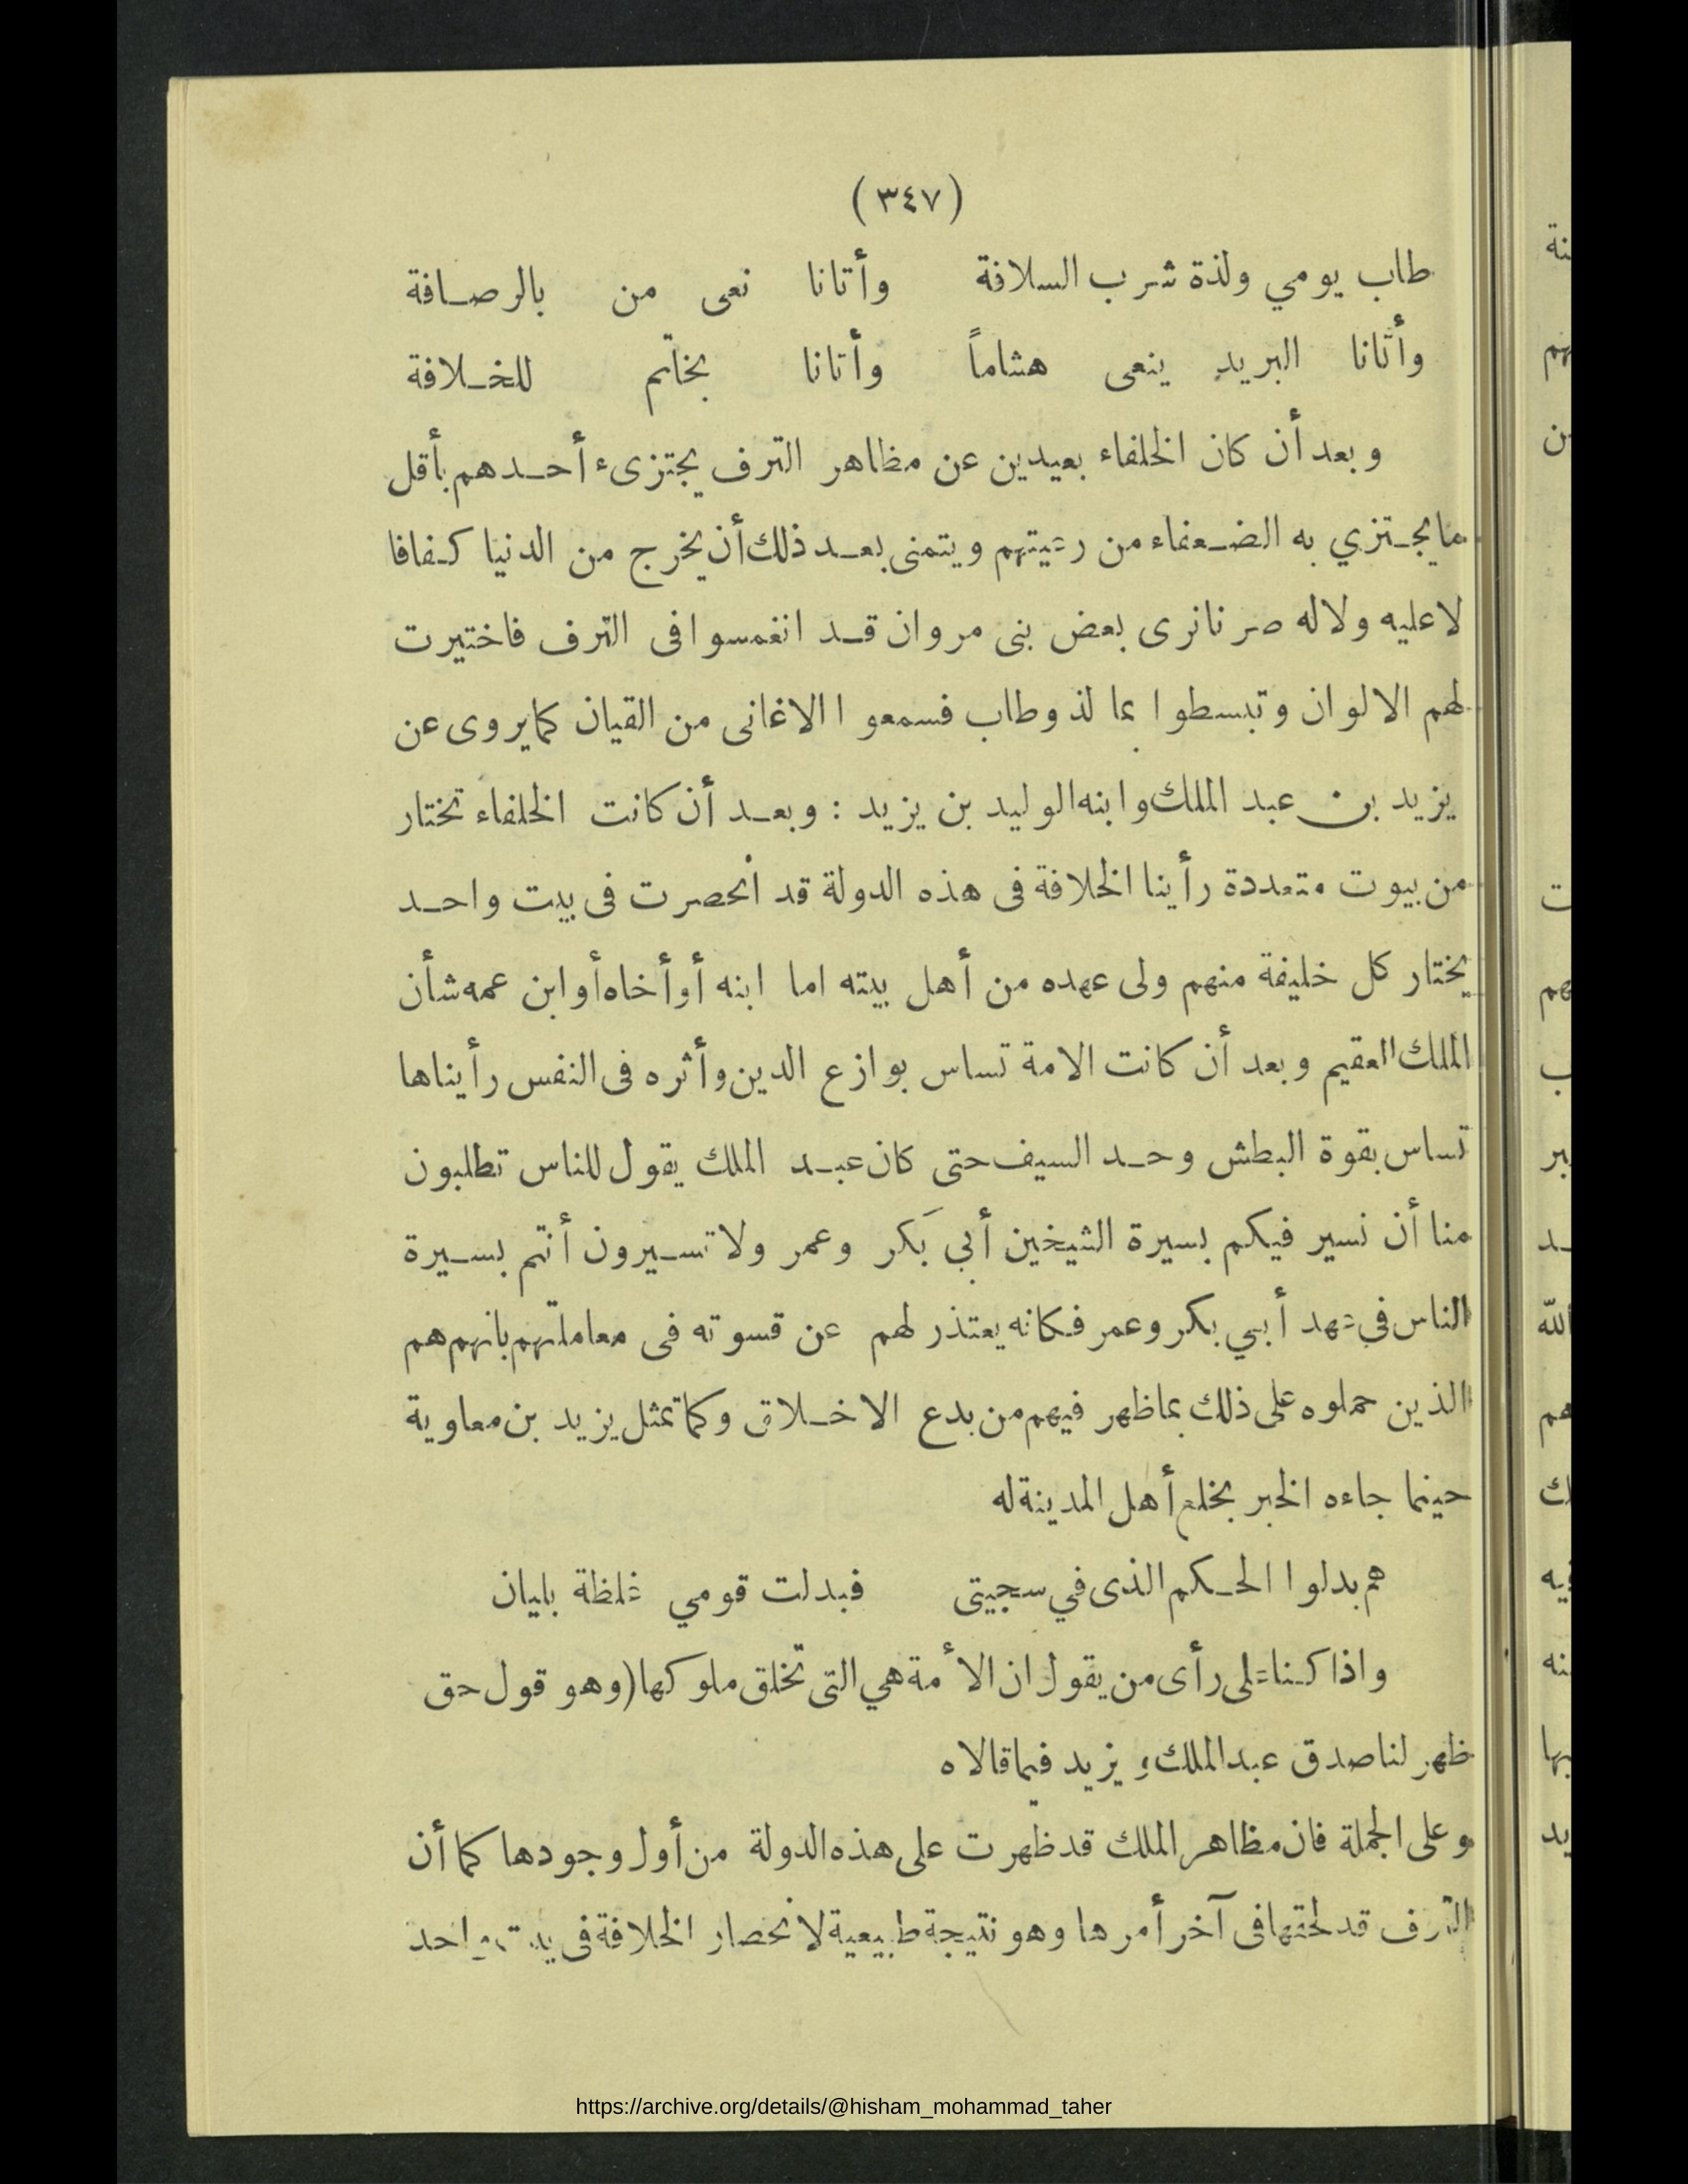 (٣٤٧)
طاب يومي ولذة شرب السلافة وأتانا نعى من بالرصافة
وأتانا البريد ينعى هشاماً وأتانا بخاتم للخلافة
وبعد أن كان الخلفاء بعيدين عن مظاهر الترف يجتزىء أحدهم بأقل
ما يجتزي به الضعفاء من رعيتهم ويتمنى بعد ذلك أن يخرج من الدنيا كفافا
لا عليه ولا له صرنا نرى بعض بنى مروان قد انغمسوا فى الترف فاختيرت
لهم الالوان وتبسطوا بما لذ وطاب فسمعوا الاغانى من القيان كما يروى عن
يزيد بن عبد الملك وابنه الوليد بن يزيد : وبعد أن كانت الخلفاء تختار
من بيوت متعددة رأينا الخلافة فى هذه الدولة قد انحصرت فى بيت واحد
يختار كل خليفة منهم ولى عهده من أهل بيته اما ابنه أو أخاه أو ابن عمه شأن
الملك العقيم وبعد أن كانت الامة تساس بوازع الدين وأثره فى النفس رأيناها
تساس بقوة البطش وحد السيف حتى كان عبد الملك يقول للناس تطلبون
منا أن نسير فيكم بسيرة الشيخين أبي بكر وعمر ولا تسيرون أنتم بسيرة
الناس في عهد أبي بكر وعمر فكانه يعتذر لهم عن قسوته فى معاملتهم بانهم هم
الذين حملوه على ذلك بما ظهر فيهم من بدع الاخلاق وكما تمثل يزيد بن معاوية
حينما جاءه الخبر بخلع أهل المدينة له
هم بدلوا الحكم الذى في سجيتى فبدلت قومي غلظة بليان
واذا كنا على رأى من يقول ان الأمة هي التى تخلق ملوكها (وهو قول حق
ظهر لنا صدق عبد الملك ويزيد فيما قالاه
وعلى الجملة فان مظاهر الملك قد ظهرت على هذه الدولة من أول وجودها كما أن
الترف قد لحقها فى آخر أمرها وهو نتيجة طبيعية لانحصار الخلافة فى بيت واحد
https://archive.org/details/@hisham_mohammad_taher